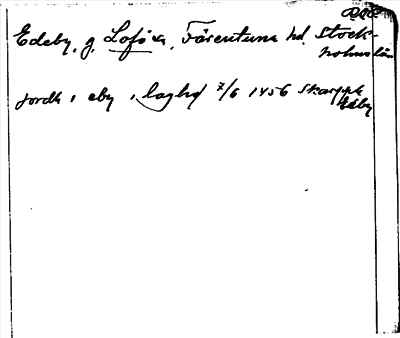 Edeby, g. Lofö sn, Färentuna hd. Stock-
holms län
jordh i eby , laghf 7/6 1456 Skarppe
Edby